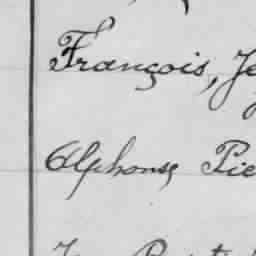 François, Je
Alphonse Pie